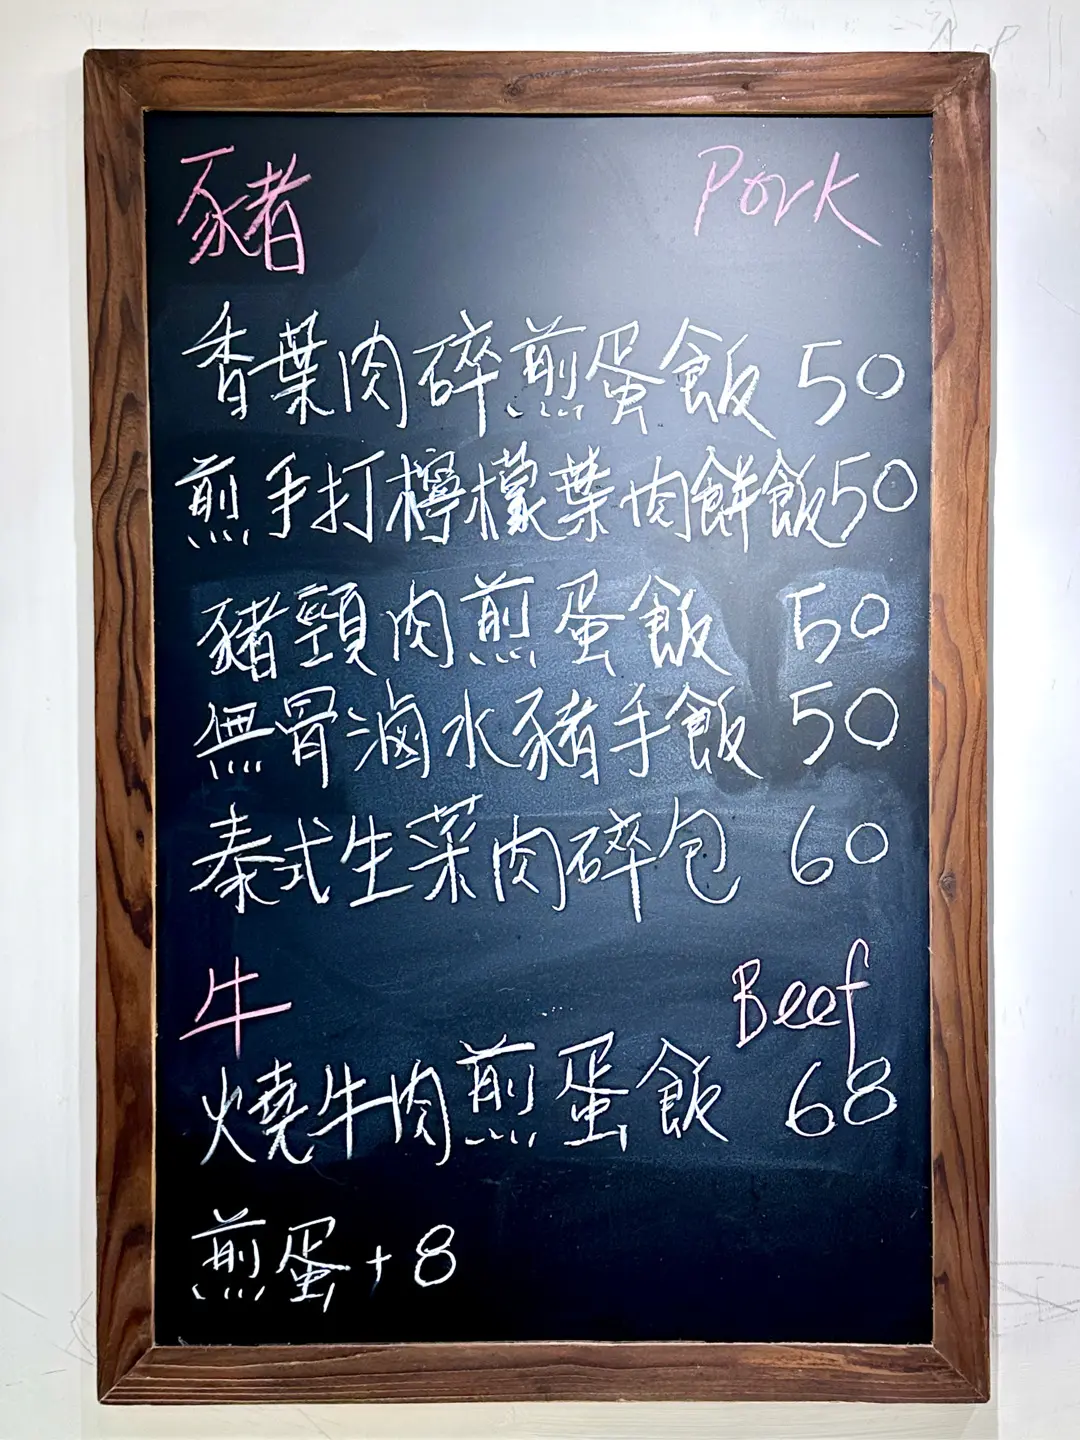 豬 Pork
香葉肉碎煎蛋飯 50
煎手打檸檬葉肉餅飯 50
豬頸肉煎蛋飯 50
無骨滷水豬手飯 50
泰式生菜肉碎包 60
牛 Beef
燒牛肉煎蛋飯 68
煎蛋+8